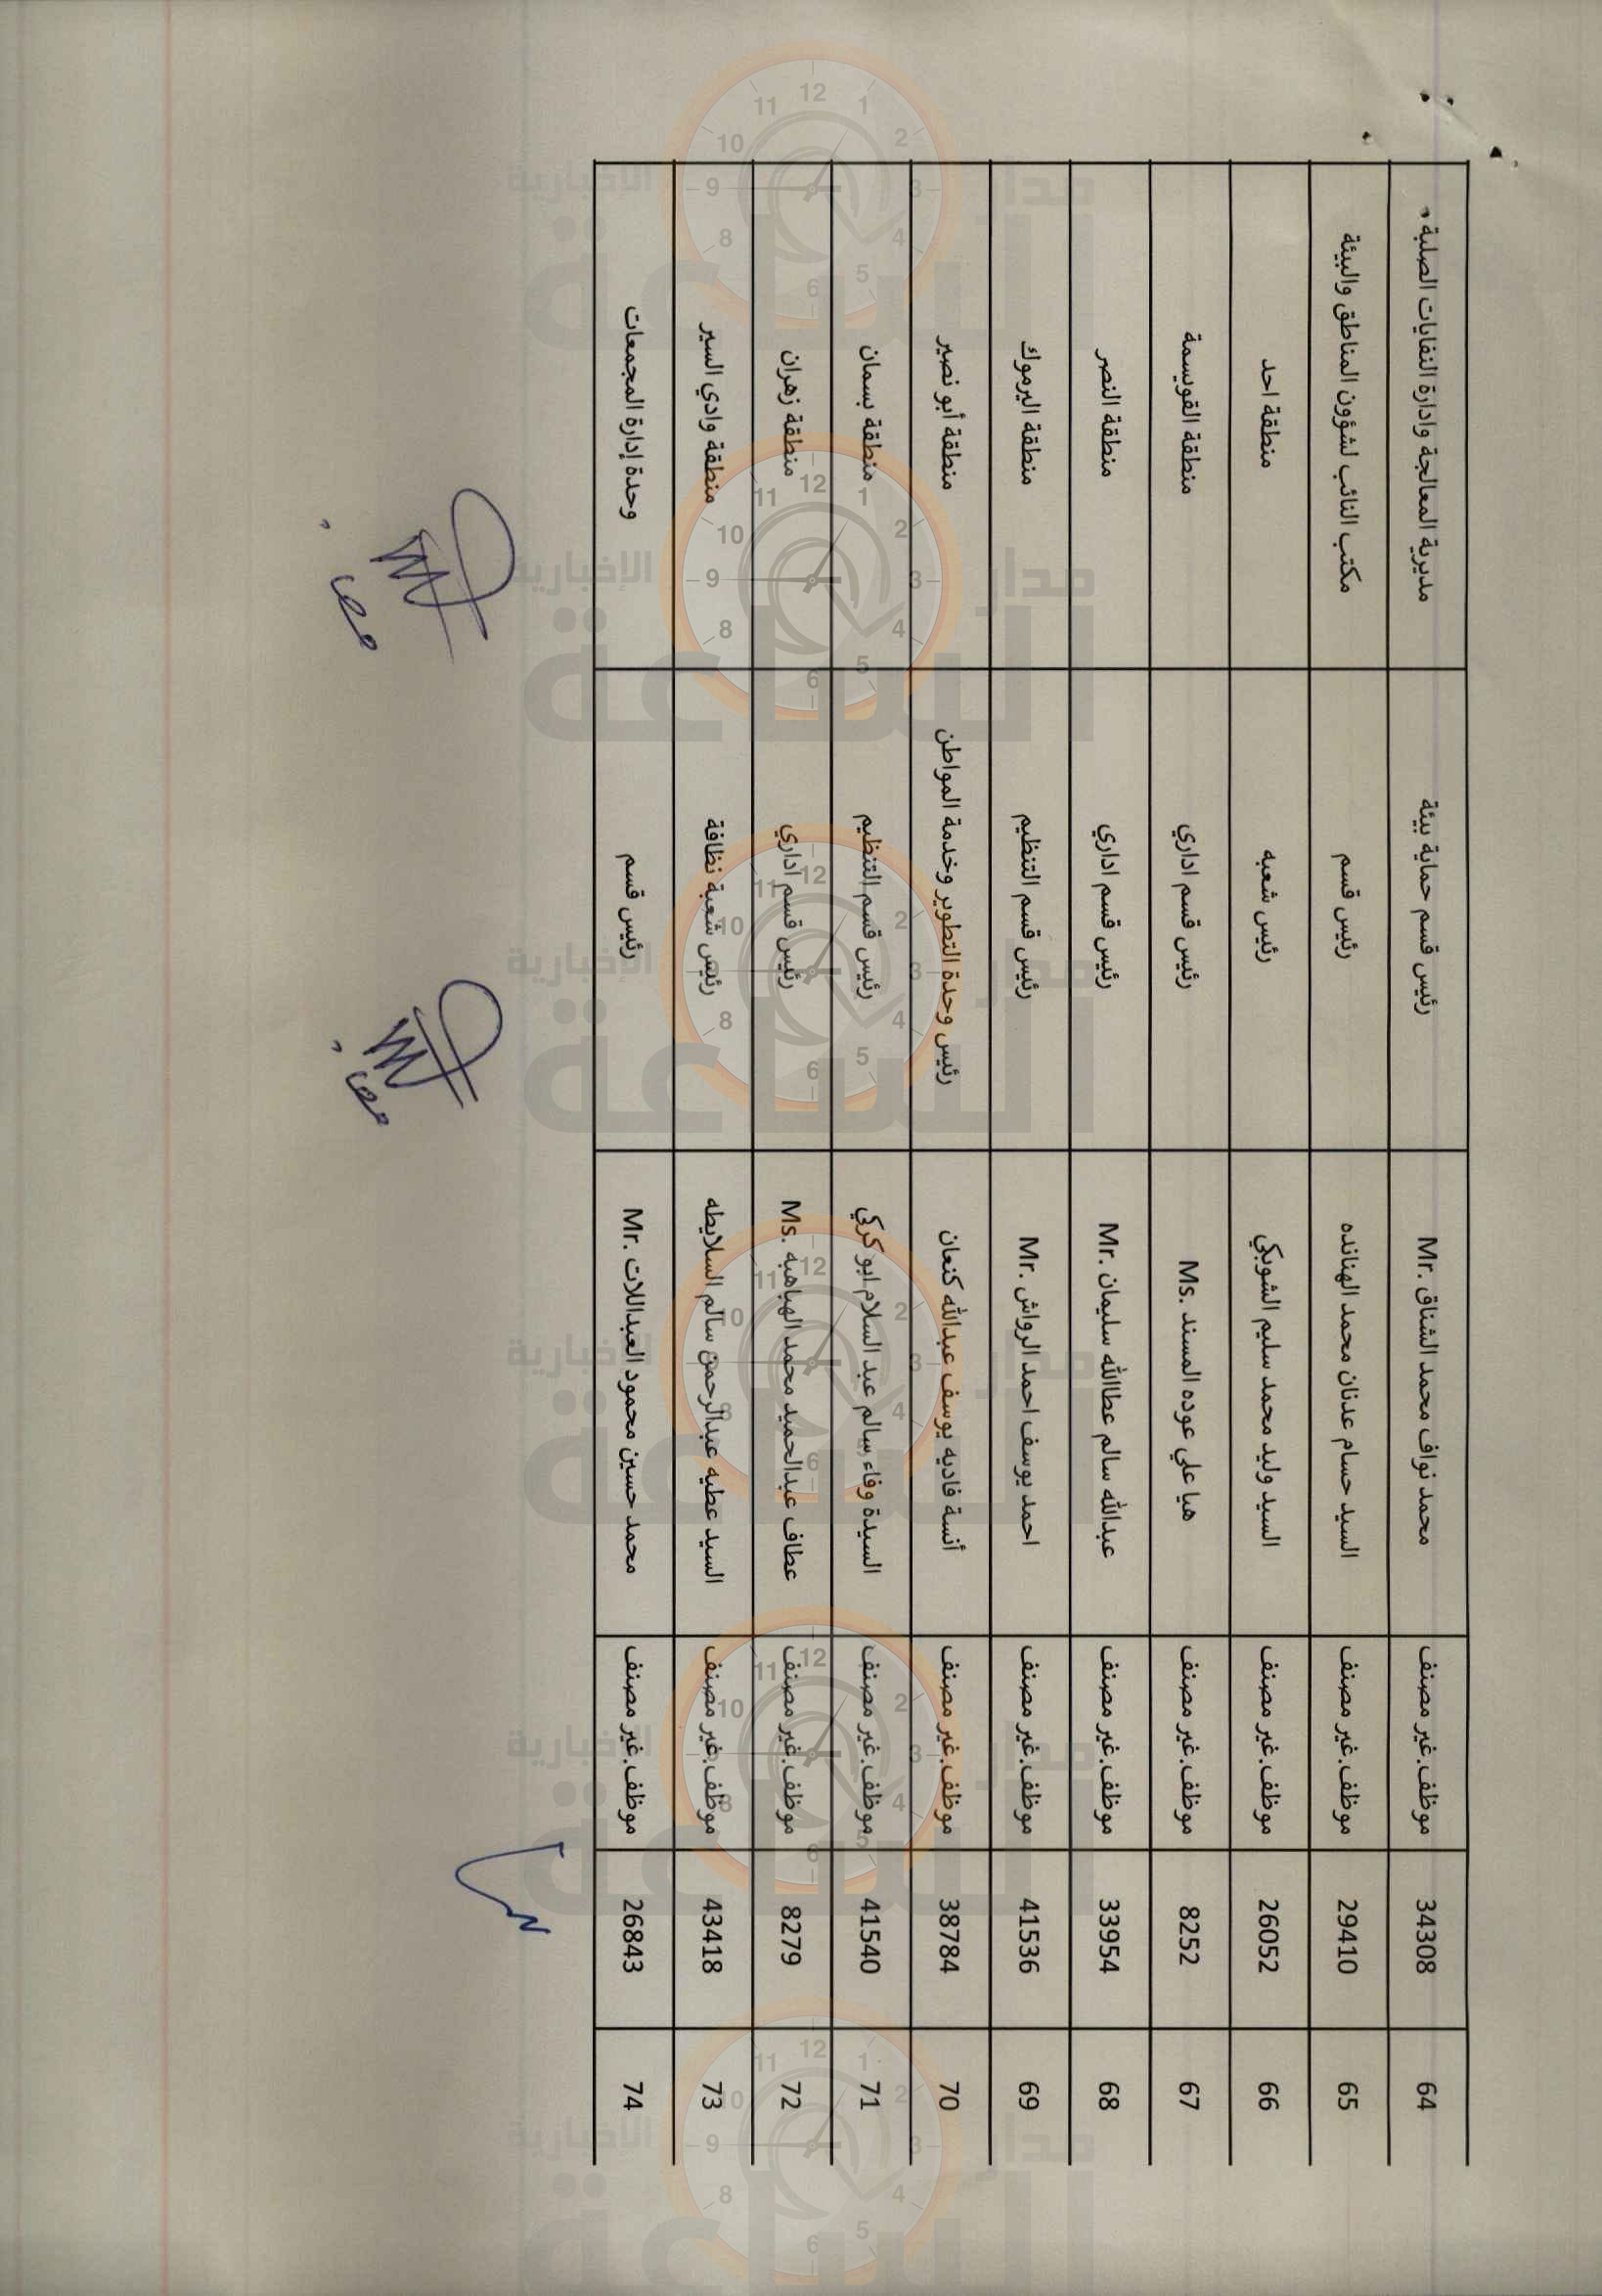 64 34308 موظف.غير مصنف Mr. محمد نواف محمد الشناق رئيس قسم حماية بيئة مديرية المعالجة وادارة النفايات الصلبة
65 29410 موظف.غير مصنف السيد حسام عدنان محمد الهنانده رئيس قسم مكتب النائب لشؤون المناطق والبيئة
66 26052 موظف.غير مصنف السيد وليد محمد سليم الشوبكي رئيس شعبه منطقة احد
67 8252 موظف.غير مصنف Ms. هيا علي عوده المسند رئيس قسم اداري منطقة القويسمة
68 33954 موظف.غير مصنف Mr. عبدالله سالم عطاالله سليمان رئيس قسم اداري منطقة النصر
69 41536 موظف.غير مصنف Mr. احمد يوسف احمد الرواش رئيس قسم التنظيم منطقة اليرموك
70 38784 موظف.غير مصنف أنسة فاديه يوسف عبدالله كنعان رئيس وحدة التطوير وخدمة المواطن منطقة أبو نصير
71 41540 موظف.غير مصنف السيدة وفاء سالم عبد السلام ابو كركي رئيس قسم التنظيم منطقة بسمان
72 8279 موظف.غير مصنف Ms. عطاف عبدالحميد محمد الهباهبه رئيس قسم اداري منطقة زهران
73 43418 موظف.غير مصنف السيد عطيه عبدالرحمن سالم السلايطه رئيس شعبة نظافة منطقة وادي السير
74 26843 موظف.غير مصنف Mr. محمد حسين محمود العبداللات رئيس قسم وحدة إدارة المجمعات
مدار الساعة الإخبارية